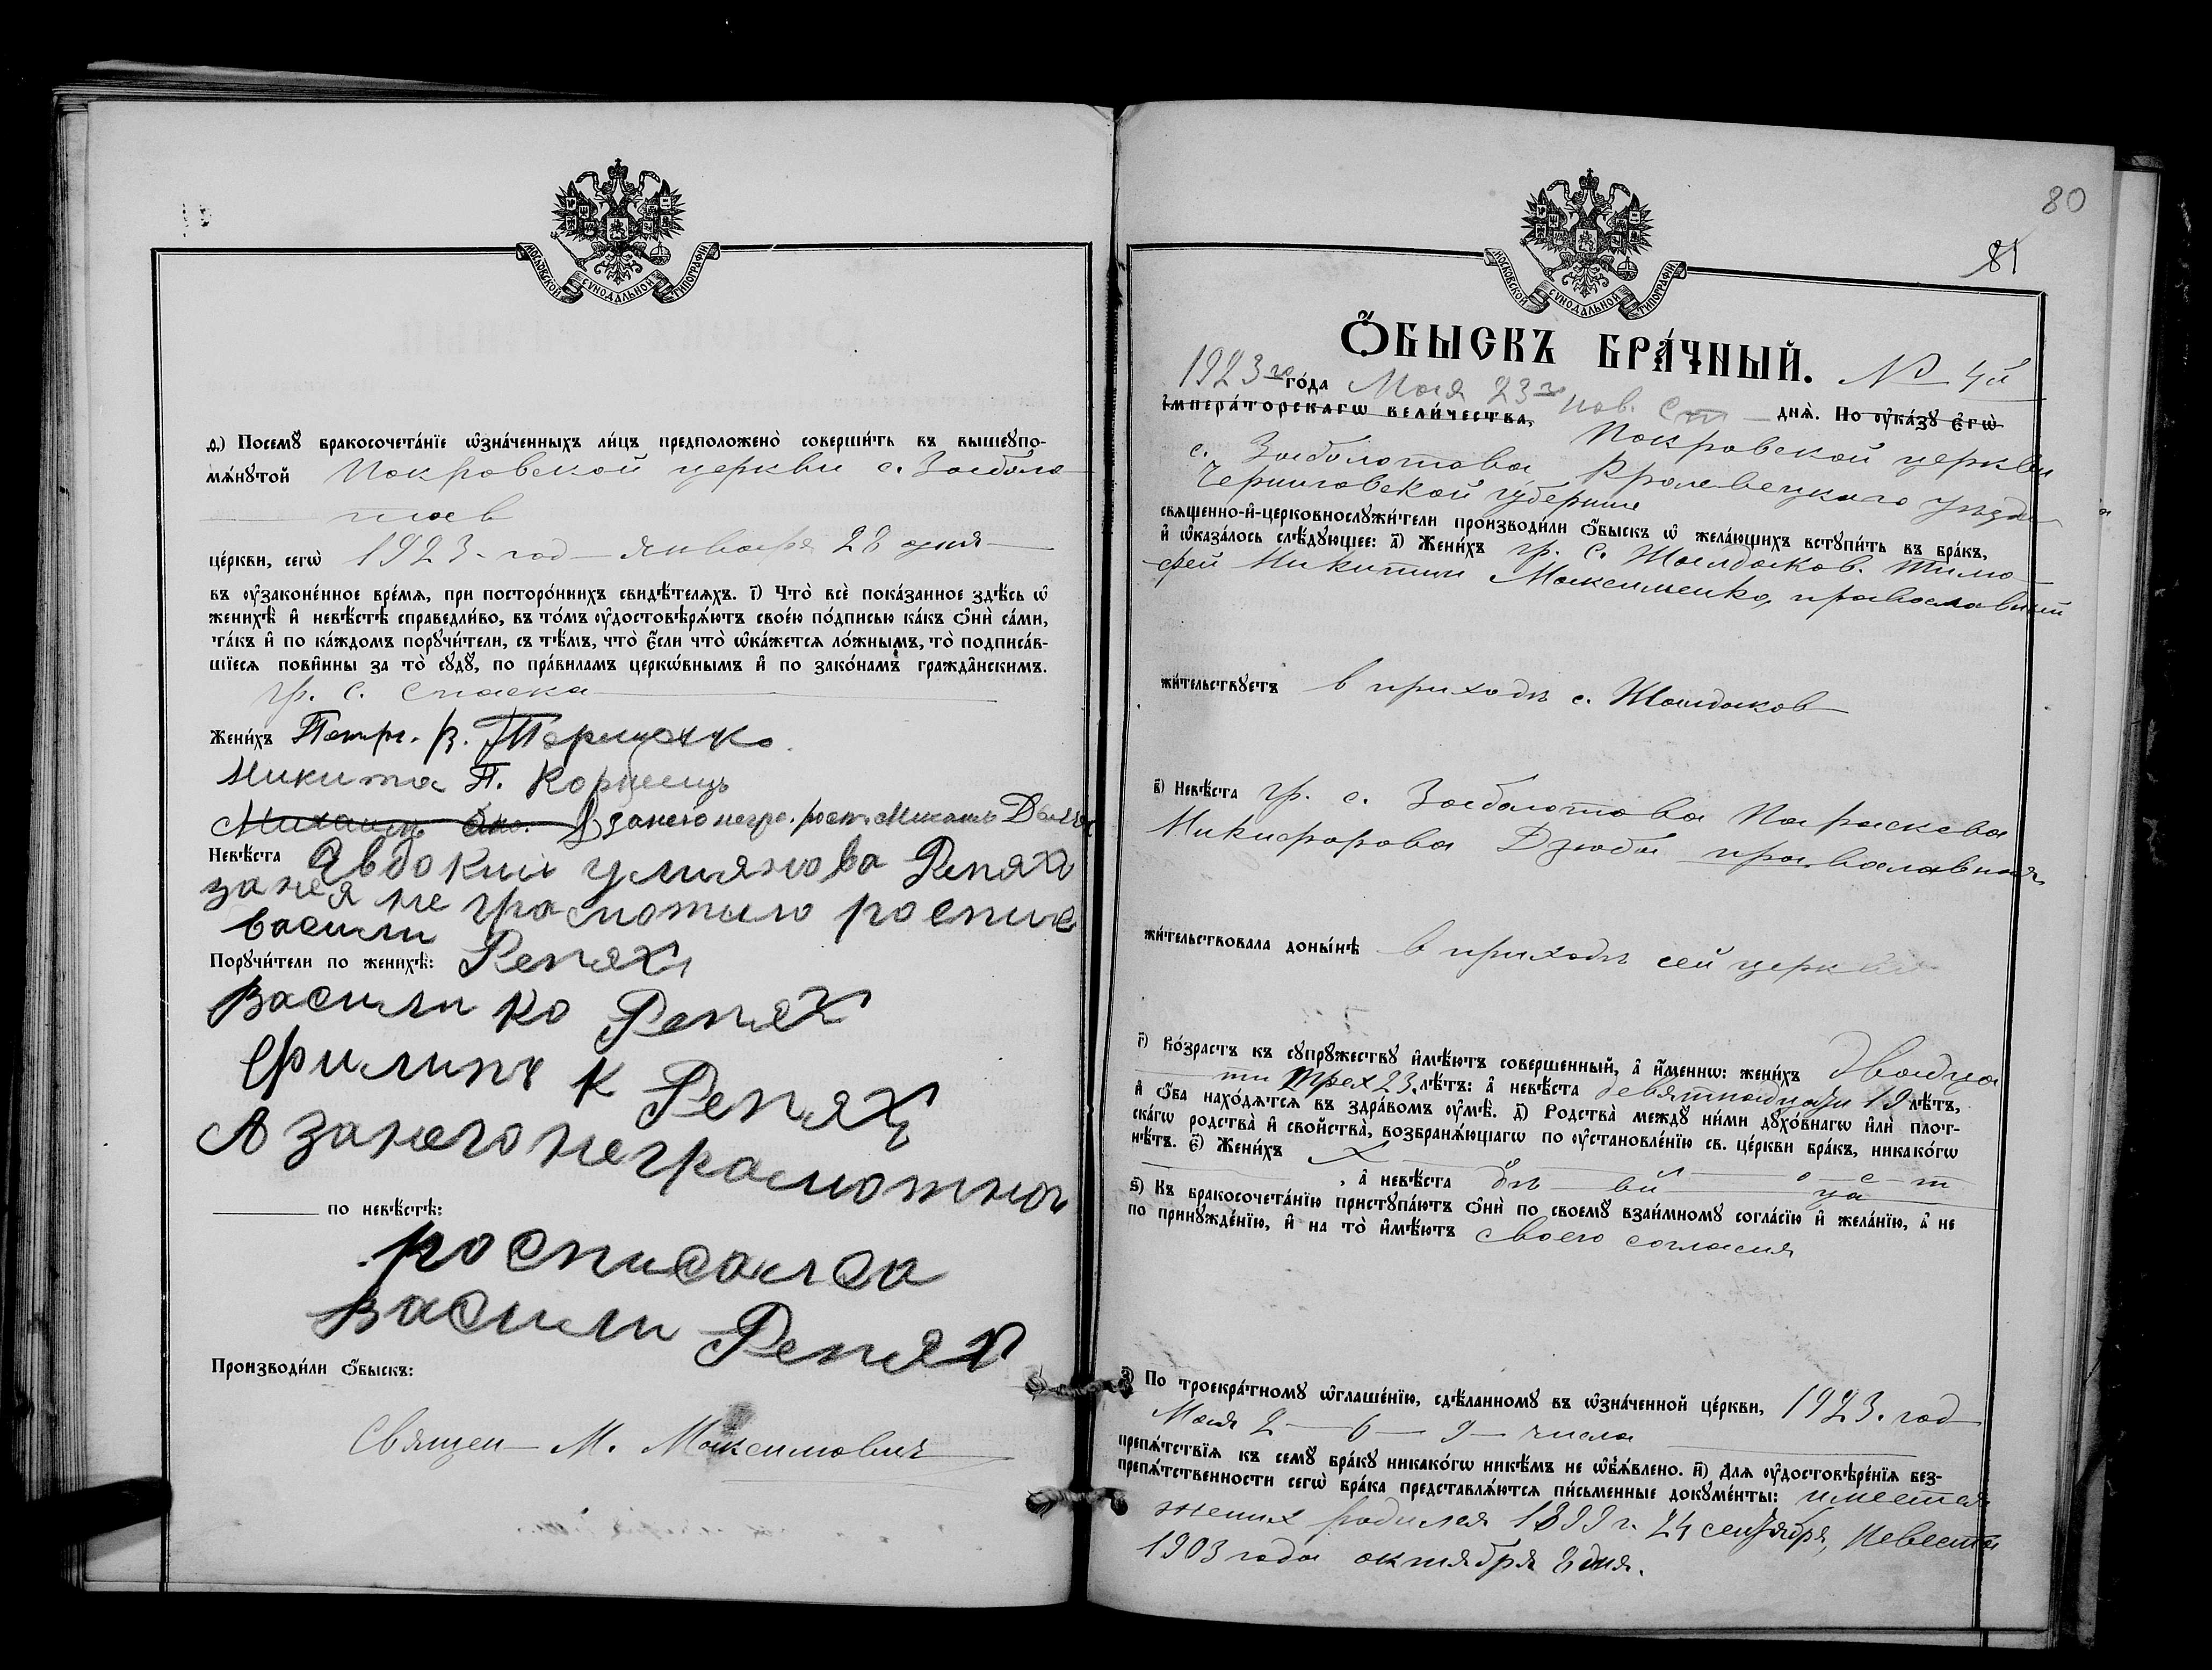 МОСКОВСКОЙ СѴНОДАЛЬНОЙ ТИПОГРАФІИ
ѳ҃.) Посемꙋ̀ бракосочета́нїе ѡ҆зна́ченныхъ ли́цъ предположенѡ̀ соверши́ть въ вышеꙋпо-
мѧ́нꙋтой Покровской церкви с. Заболо
тов
це́ркви, сегѡ̀ 1923 - год - января 28 дня
въ ᲂу҆зако́ненное вре́мѧ, при посторо́ннихъ свидѣ́телѧхъ. і҃) Что̀ всѐ пока́занное здѣ́сь ѡ҆
женихѣ̀ и҆ невѣ́стѣ справедли́во, въ то́мъ ᲂу҆достовѣрѧ́ютъ свое́ю по́дписью ка́къ ѻ҆нѝ са́ми,
та́къ и҆ по ка́ждомъ порꙋчи́тели, съ тѣ́мъ, что̀ є҆́сли что̀ ѡ҆ка́жетсѧ ло́жнымъ, то̀ подписа́в-
шїесѧ пови́нны за то̀ сꙋдꙋ̀, по пра́виламъ церкѡ́внымъ и҆ по зако́намъ гражда̂нскимъ.
гр. с. Спаска
Жени́хъ Петръ. В. Терещенко.
Микита П. Корнеиц
Михаилъ за него негра. росп. Михаилъ
Невѣ́ста Явдокия улиянова Репяха
за нея не грамотыю роспис
васили Репях
Порꙋчи́тели по женихѣ̀:
Васили Ко Репях
Филипъ К Репях
А за него неграмотного
по невѣ́стѣ:
росписался
Васили Репях
Производи́ли ѻ҆́быскъ:
Священ М. Максимович
80
81
МОСКОВСКОЙ СѴНОДАЛЬНОЙ ТИПОГРАФІИ
Ѻ҆́БЫСКЪ БРА́ЧНЫЙ. № 4й
1923го го́да Мая 23го нов. ст днѧ̀. По ᲂу҆ка́зꙋ є҆гѡ̀
і҆мпера́торскагѡ вели́чества, Покровской церкви
с. Заболотова, Кролевецкого уезда
Черниговской губернии
свѧще́нно-и҆-церковнослꙋжи́тели производи́ли ѻ҆́быскъ ѡ҆ жела́ющихъ встꙋпи́ть въ бра́къ,
и҆ ѡ҆каза́лось слѣ́дꙋющее: а҃) Жени́хъ гр. с. Жолдаков. Тимо
фей Никитин Максименко, православный
жи́тельствꙋетъ в приходѣ с. Жолдаков
в҃) Невѣ́ста гр. с. Заболотова Параскева
Никифорова Дзюба православная
жи́тельствовала доны́нѣ в приходѣ сей церкви
г҃) Во́зрастъ къ сꙋпрꙋ́жествꙋ и҆мѣ́ютъ соверше́нный, а҆ и҆́меннѡ: жени́хъ двадца
ти трех 23. лѣ́тъ: а҆ невѣ́ста девятнадцати 19 лѣ́тъ,
и҆ ѻ҆́ба нахо́дѧтсѧ въ здра́вомъ ᲂу҆мѣ̀. д҃) Родства̀ междꙋ̀ ни́ми дꙋхо́внагѡ и҆лѝ пло́т-
скагѡ родства̀ и҆ сво́йства̀, возбранѧ́ющагѡ по ᲂу҆становле́нїю св. це́ркви бра́къ, никако́гѡ
нѣ́тъ. є҃) Жени́хъ х о с т
, а҆ невѣ́ста дѣ ви ца
ѕ҃) Къ бракосочета́нїю пристꙋпа́ютъ ѻ҆нѝ по своемꙋ̀ взаи́мномꙋ согла́сїю и҆ жела́нїю, а҆ не
по принꙋжде́нїю, и҆ на то̀ и҆мѣ́ютъ своего согласия
з҃) По троекра́тномꙋ ѡ҆глаше́нїю, сдѣ́ланномꙋ въ ѡ҆зна́ченной це́ркви, 1923. год
Мая 2 — 6 — 9 — числа
препѧ́тствїѧ къ семꙋ̀ бра́кꙋ никако́гѡ никѣ́мъ не ѡ҆б̾ѧ́влено. и҃) Длѧ ᲂу҆достовѣре́нїѧ без-
препѧ́тственности сегѡ̀ бра́ка представлѧ́ютсѧ пи́сьменные докꙋме́нты: имеется
жених родился 1899 г. 24 сентября, Невеста
1903 года октября 8 дня.